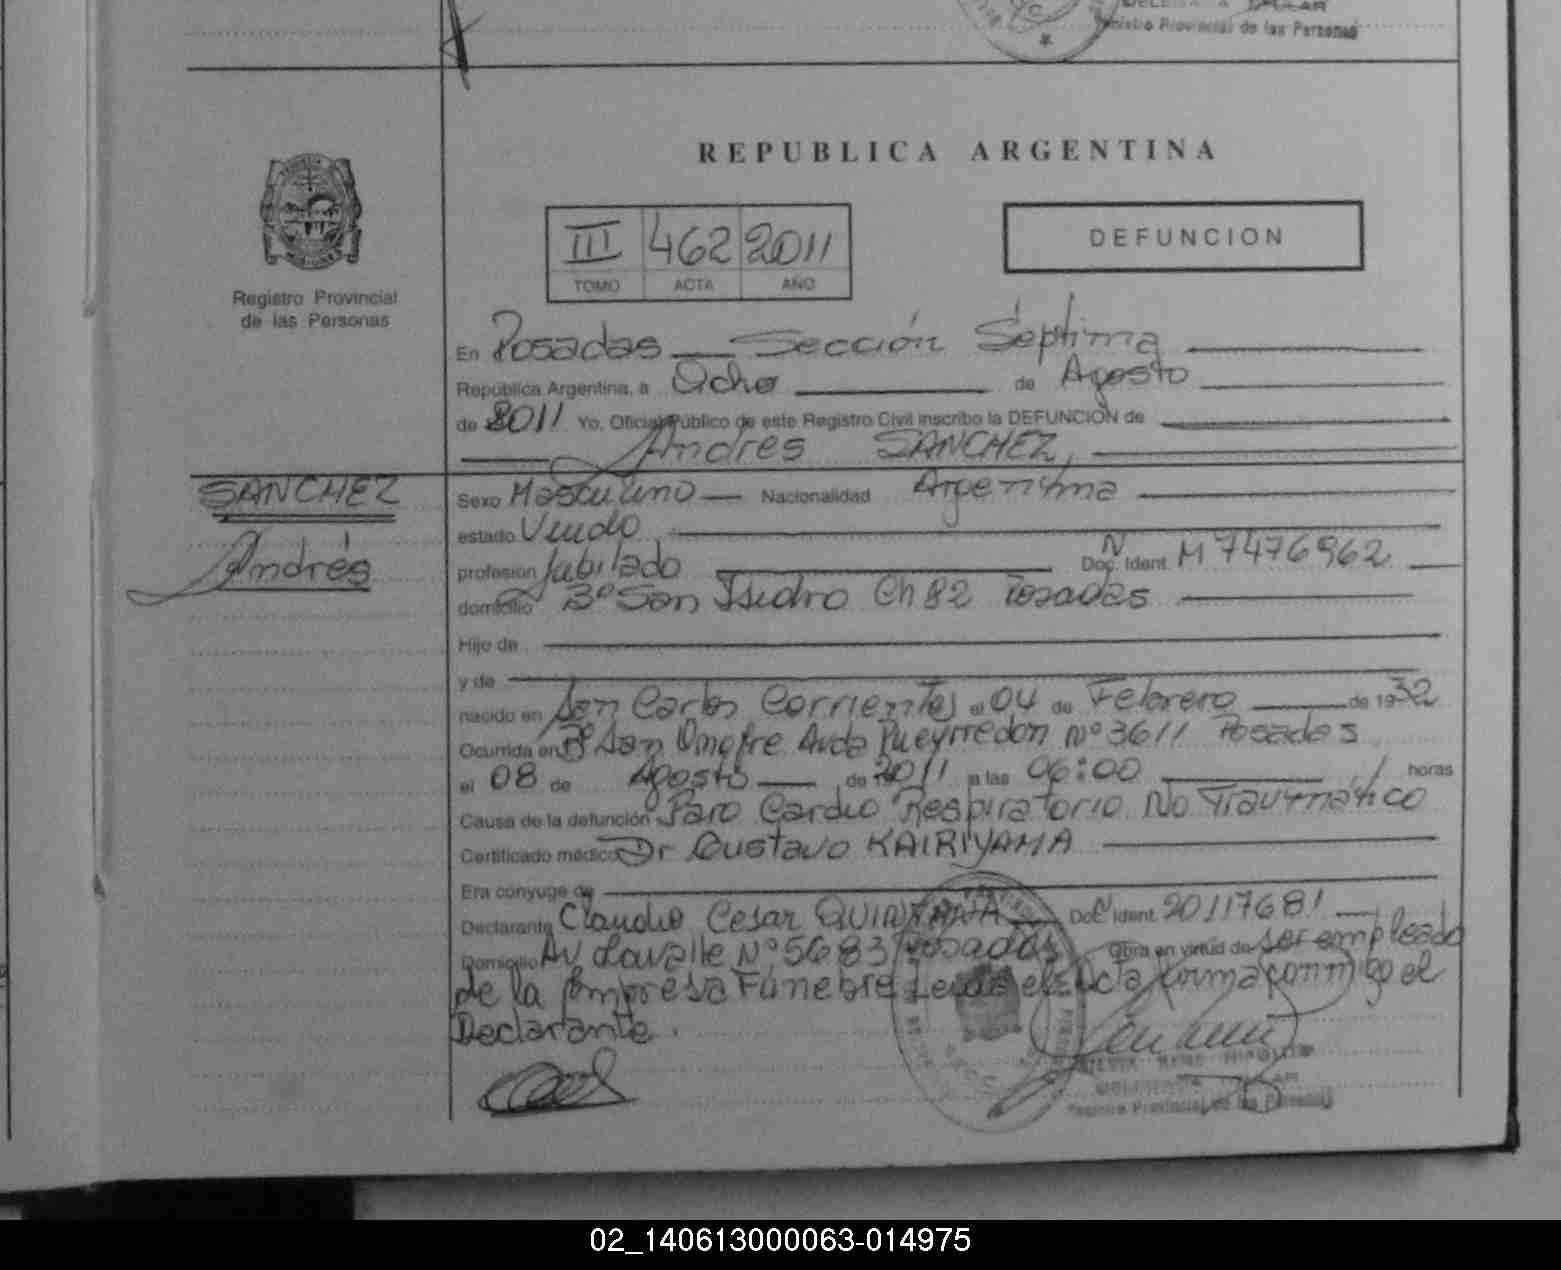 Registro Provincial de las Personas
REPUBLICA ARGENTINA
III 462 2011
TOMO ACTA AÑO
DEFUNCION
Registro Provincial
de las Personas
En Posadas Sección Séptima
República Argentina, a Ocho de Agosto
de 2011 Yo, Oficial Público de este Registro Civil inscribo la DEFUNCION de
Andrés SANCHEZ,
SANCHEZ
Andrés
Sexo Masculino Nacionalidad Argentina
estado Viudo
profesión Jubilado Doc. Ident. M 7476962
domicilio Bº San Isidro Ch 82 Posadas
Hijo de
y de
nacido en San Carlos Corrientes el 04 de Febrero de 1932
Ocurrida en Bº San Onofre Avda Pueyrredon Nº 3611 Posadas
el 08 de Agosto de 2011 a las 06:00 horas
Causa de la defunción Paro Cardio Respiratorio No Traumatico
Certificado médico Dr Gustavo KAIRIYAMA
Era cónyuge de
Declarante Claudio Cesar QUINTANA Doc. Ident. 20117681
Domicilio Av Lavalle Nº 5683 Posadas Obra en virtud de ser empleado
de la Empresa Fúnebre Leida el Acta firma conmigo el
Declarante.
Registro Provincial de las Personas
02_140613000063-014975